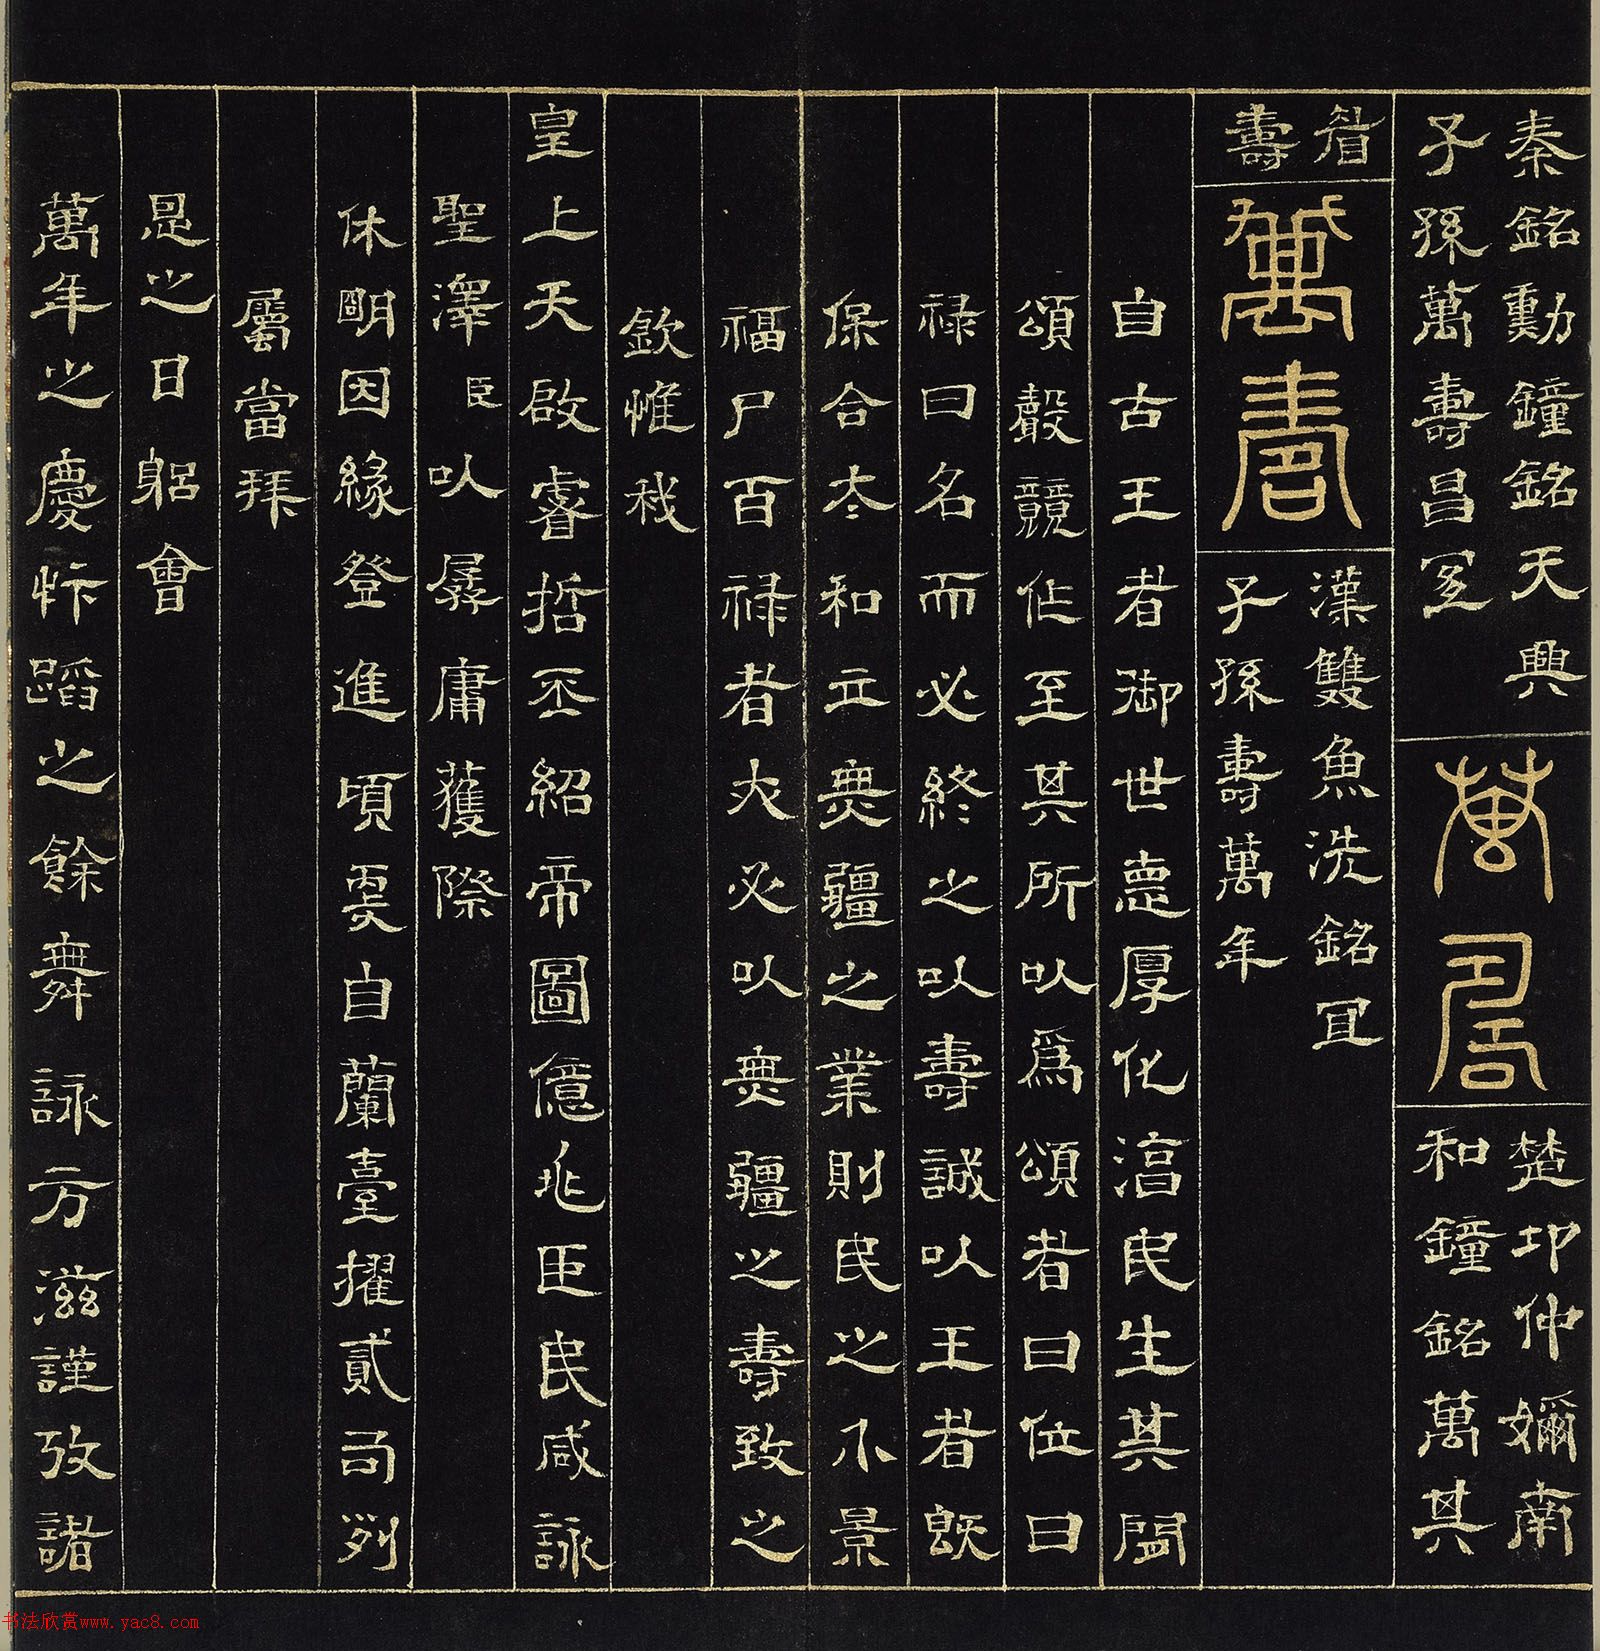 秦銘勳鐘銘天興
子孫萬壽昌宜
萬壽
楚邛仲嬭南
和鐘銘萬其
眉
壽
萬壽
漢雙魚洗銘宜
子孫壽萬年
自古王者御世悳厚化滔民生其間
頌聲競作至其所以爲頌者曰位曰
祿曰名而必終之以壽誠以王者既
保合太和立無疆之業則民之不景
福尸百祿者夫必以無疆之壽致之
欽惟我
皇上天啟睿哲丕紹帝圖億兆臣民咸詠
聖澤臣以孱庸獲際
休明因緣登進頃更自蘭臺擢貳司列
屬當拜
是之日躬會
萬年之慶忭蹈之餘舞詠方滋謹攷諸
书法欣赏www.yac8.com